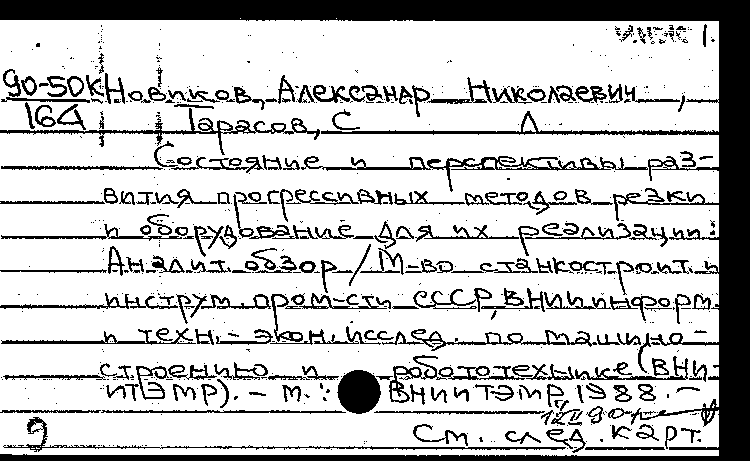 1.
90-50К Новиков, Александр Николаевич,
164 Тарасов, С Л
Состояние и перспективы раз-
вития прогрессивных методов резки
и оборудование для их реализации:
Аналит. обзор / М-во станкостроит. и
инструм. пром-сти СССР, ВНИИ информ.
и техн.-экон. исслед. по машино-
строению и робототехнике (ВНИ-
ИТЭМР). - М. : ВНИИТЭМР, 1988. -
9 См. след. карт.